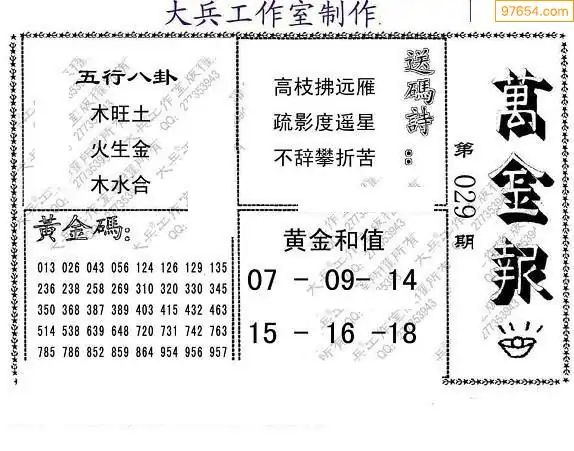 大兵工作室制作.
97654.com
五行八卦
木旺土
火生金
木水合
送碼詩：
高枝拂远雁
疏影度遥星
不辞攀折苦
萬金報
第 029 期
黃金碼：
013 026 043 056 124 126 129 135
236 238 258 269 310 320 330 345
350 368 387 389 403 415 432 463
514 538 639 648 720 731 742 763
785 786 852 859 864 954 956 957
黄金和值
07 - 09- 14
15 - 16 -18